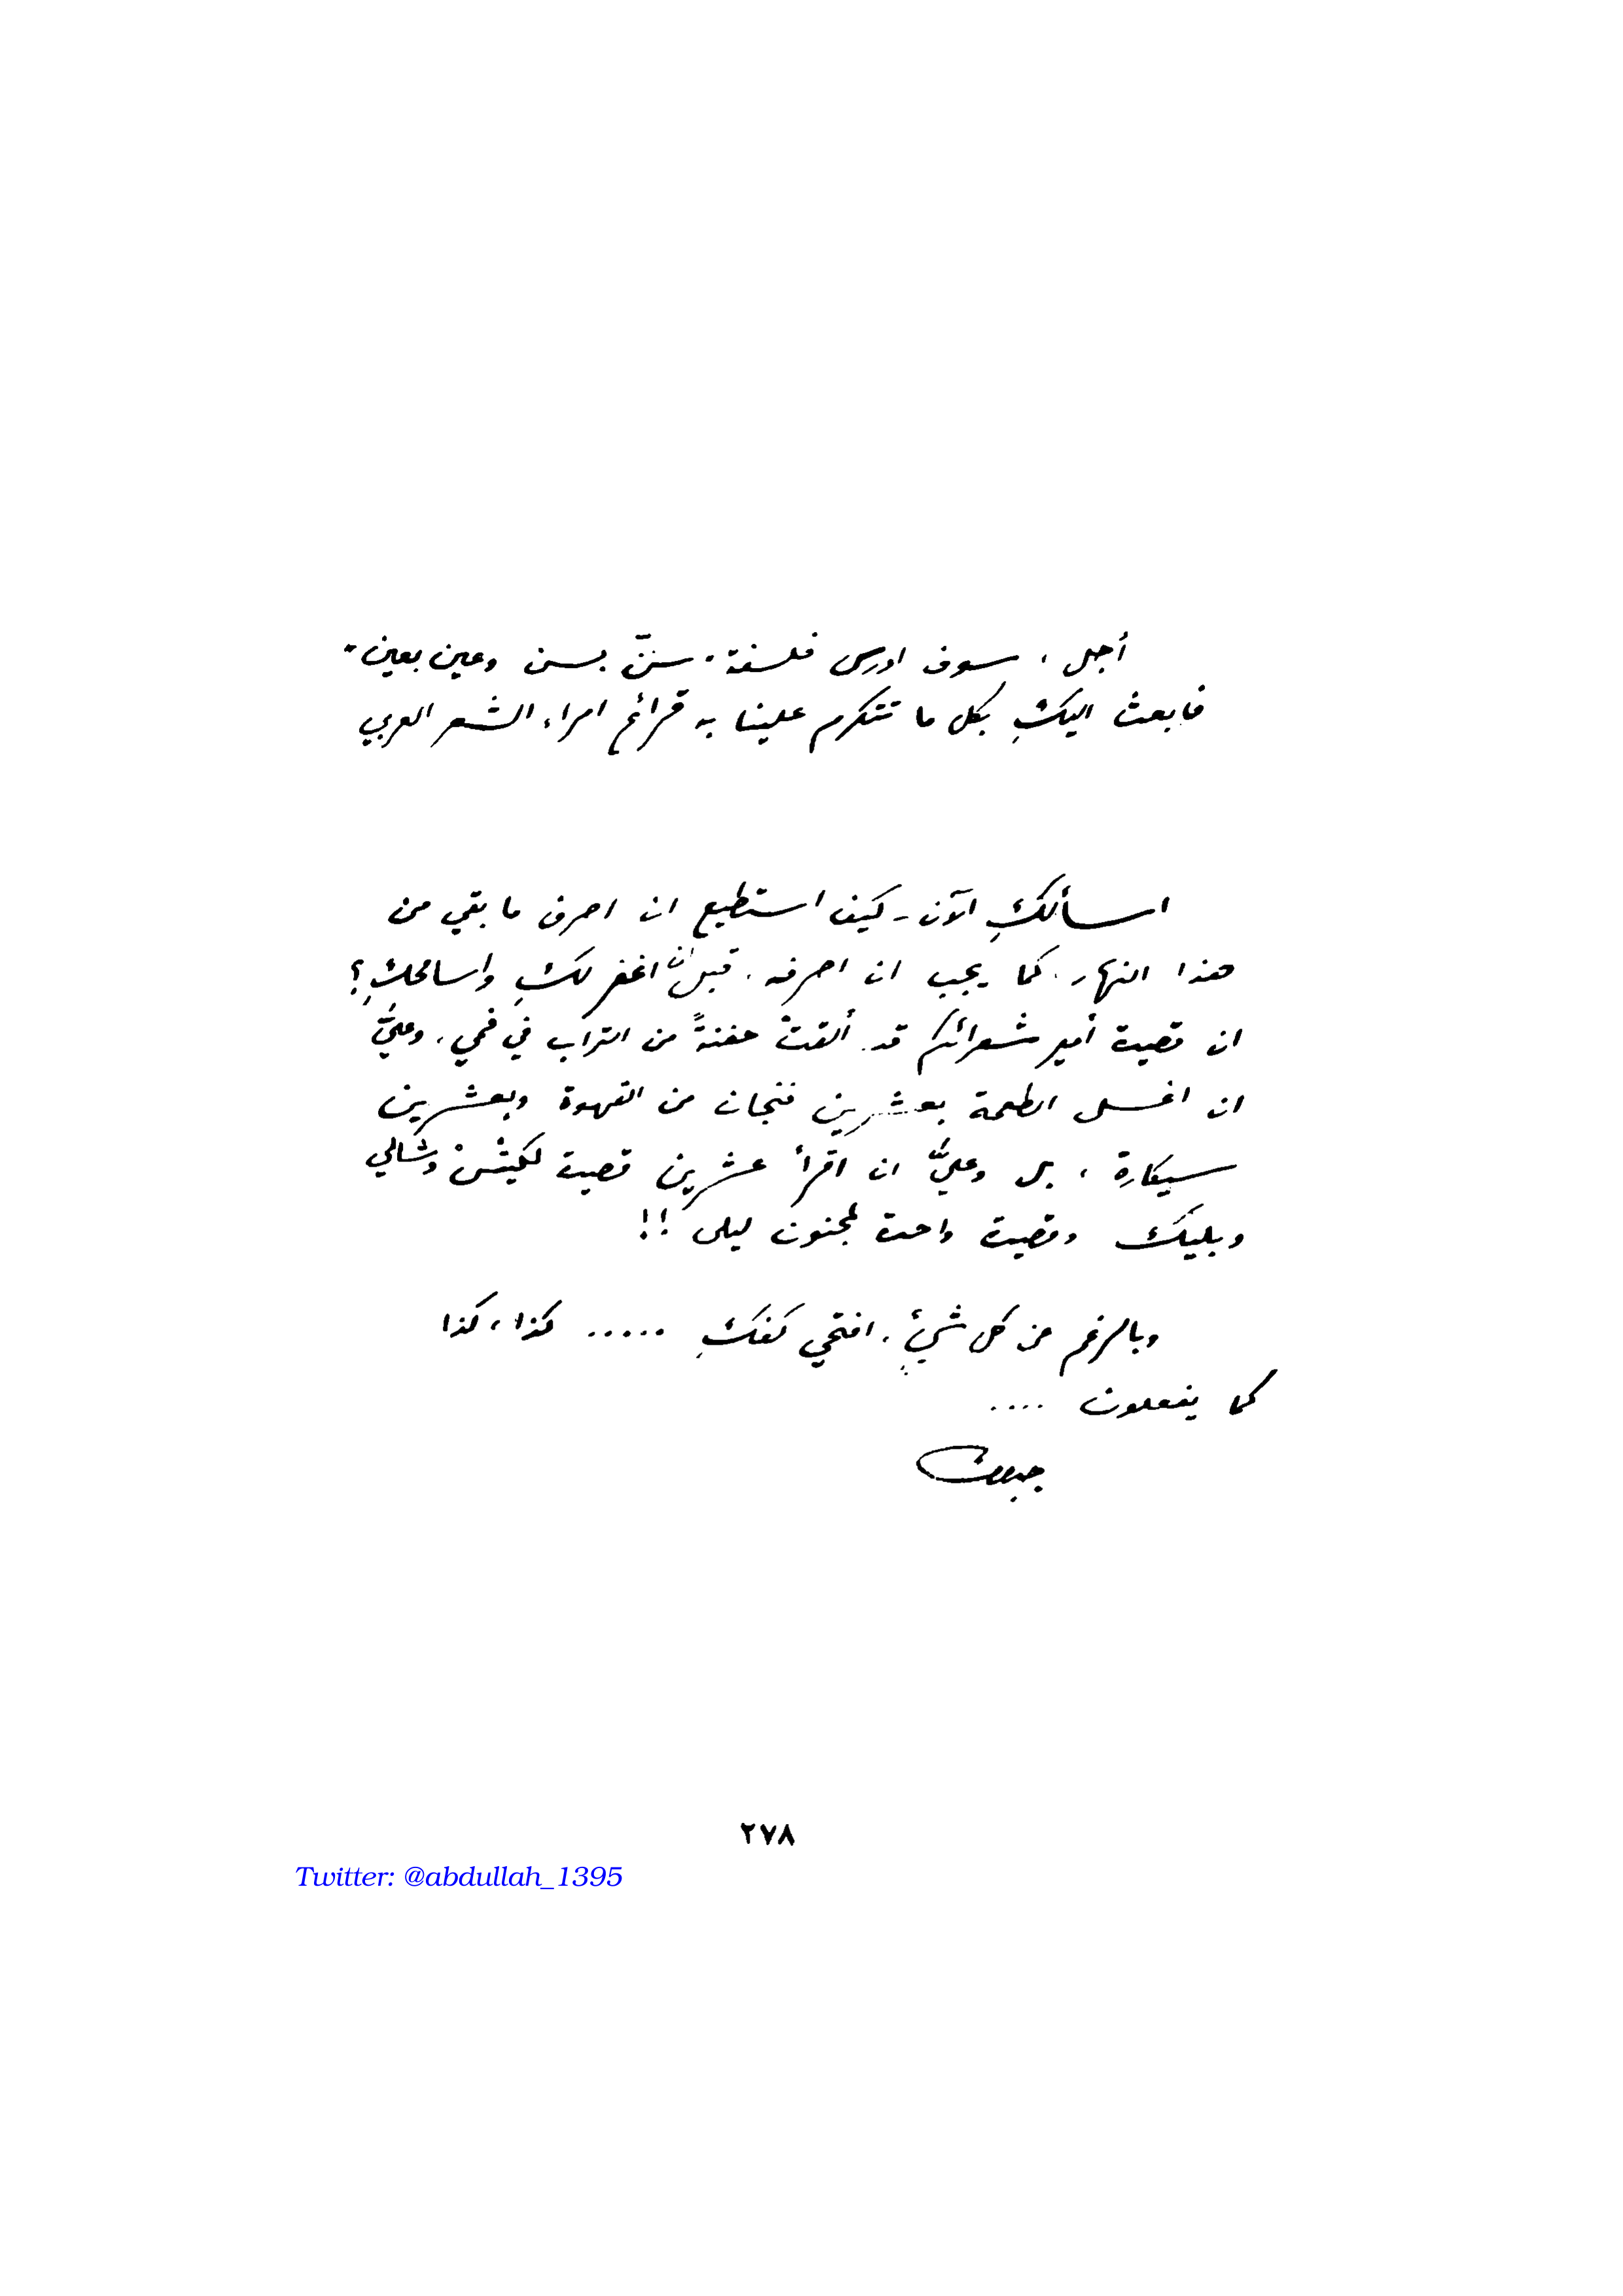 أجل ، سوف ادرس فلسفة " سنّ بسن وعين بعين "
فابعث اليكِ بكل ما تتكرم علينا به قرائح امراء الشعر العربي
اسألكِ الآن - كيف استطيع ان اصرف ما بقي من
هذا النهار ، كما يجب ان اصرفه ، قبل ان اغفر لكِ واسامحكِ ؟
ان قصيدة أمير شعرائكم قد ألقتْ حفنةً من التراب في فمي ، وعليَّ
ان اغسل الطعمة بعشرين فنجان من القهوة وبعشرين
سيكارة ، بل وعليَّ ان اقرأ عشرين قصيدة لكيتْسْ وشالي
وبليك وقصيدة واحدة لمجنون ليلى !!
وبالرغم من كل شيءٍ ، افتحي كفكِ ..... كذا ، كذا
كما يفعلون ....
جبران
٢٧٨
Twitter: @abdullah_1395